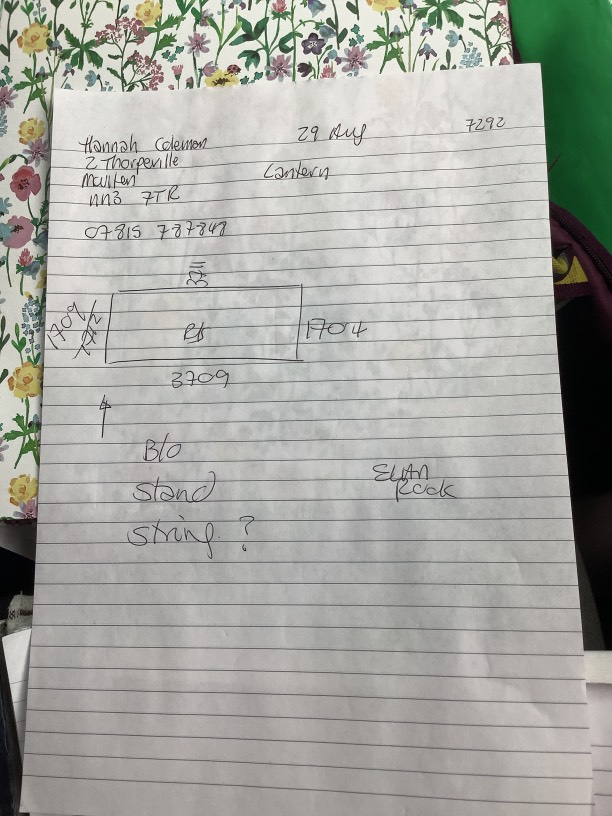 Hannah Coleman
29 Aug
7292
2 Thorpeville
Moulton
Lantern
NN3 7TR
07815 787848
1709
1704
3709
B/O
Stand
String. ?
Elan
Rock